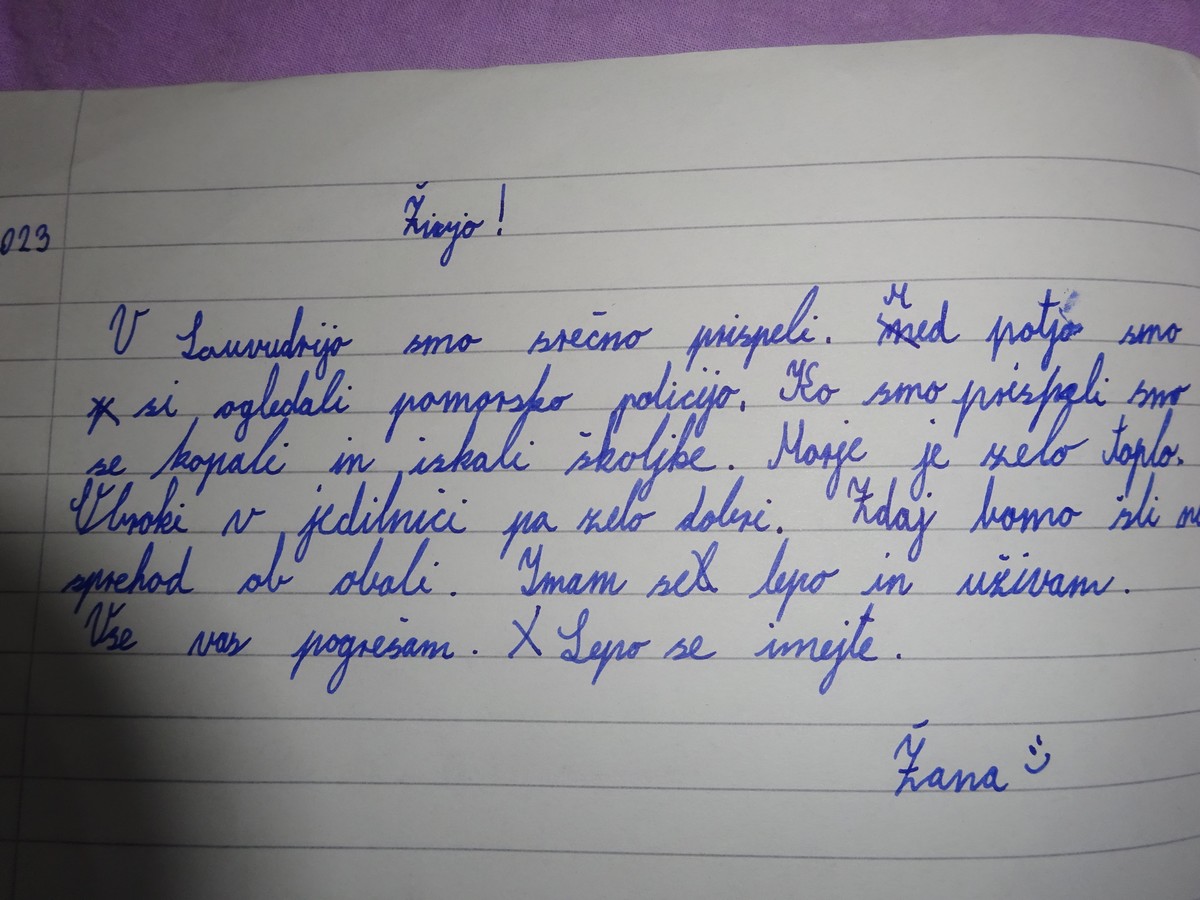 023
Živjo!
V Sauvudrijo smo srečno prispeli. Med potjo smo
si ogledali pomorsko policijo. Ko smo prispeli smo
se kopali in iskali školjke. Morje je zelo toplo.
Obroki v jedilnici pa zelo dobri. Zdaj bomo šli na
sprehod ob obali. Imam se lepo in uživam.
Vse vas pogrešam. Lepo se imejte.
Žana